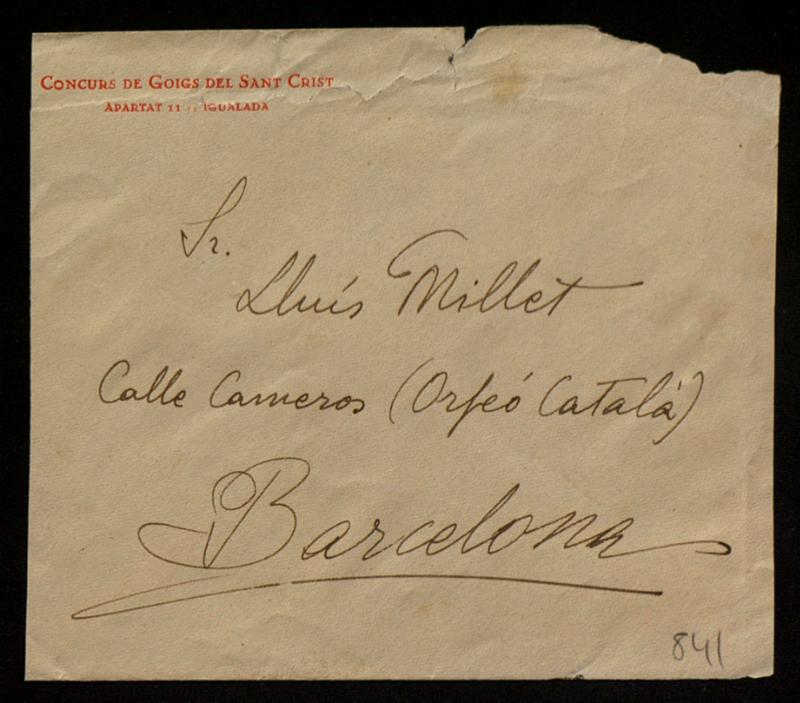 CONCURS DE GOIGS DEL SANT CRIST
APARTAT 11 :: IGUALADA
Sr.
Lluís Millet
Calle Cameros (Orfeó Català)
Barcelona
841